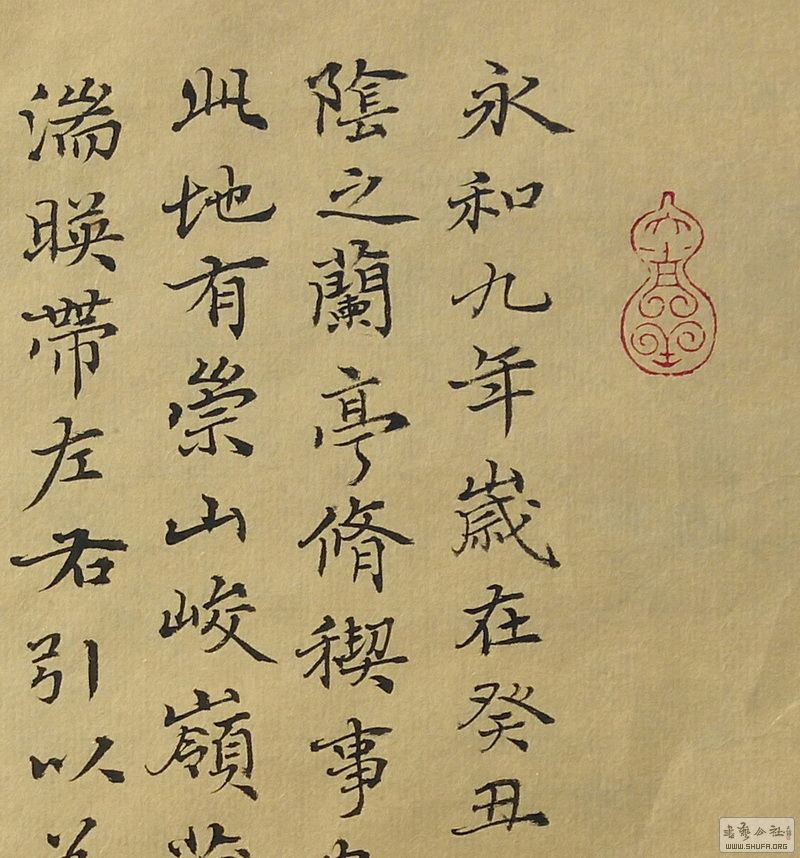 永和九年歲在癸丑
陰之蘭亭脩稧事
此地有崇山峻嶺
湍暎帶左右引以為
書藝公社
WWW.SHUFA.ORG